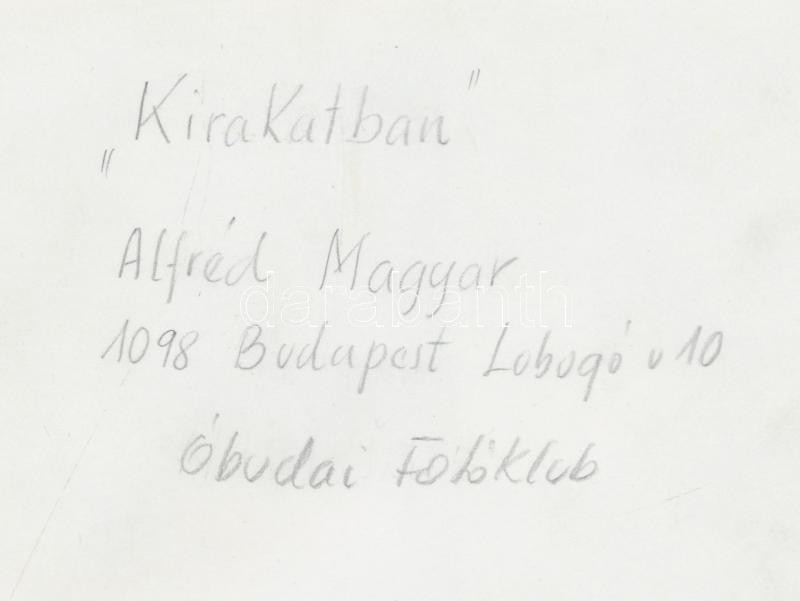 „Kirakatban”
Alfréd Magyar
darabanth
1098 Budapest Lobogó u 10
Óbudai Fotóklub